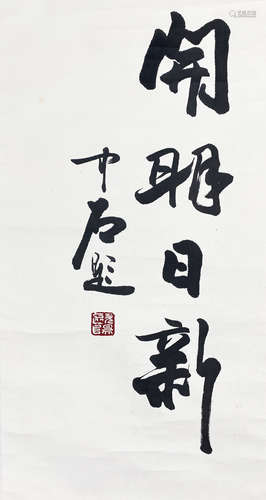 開明日新
中石題